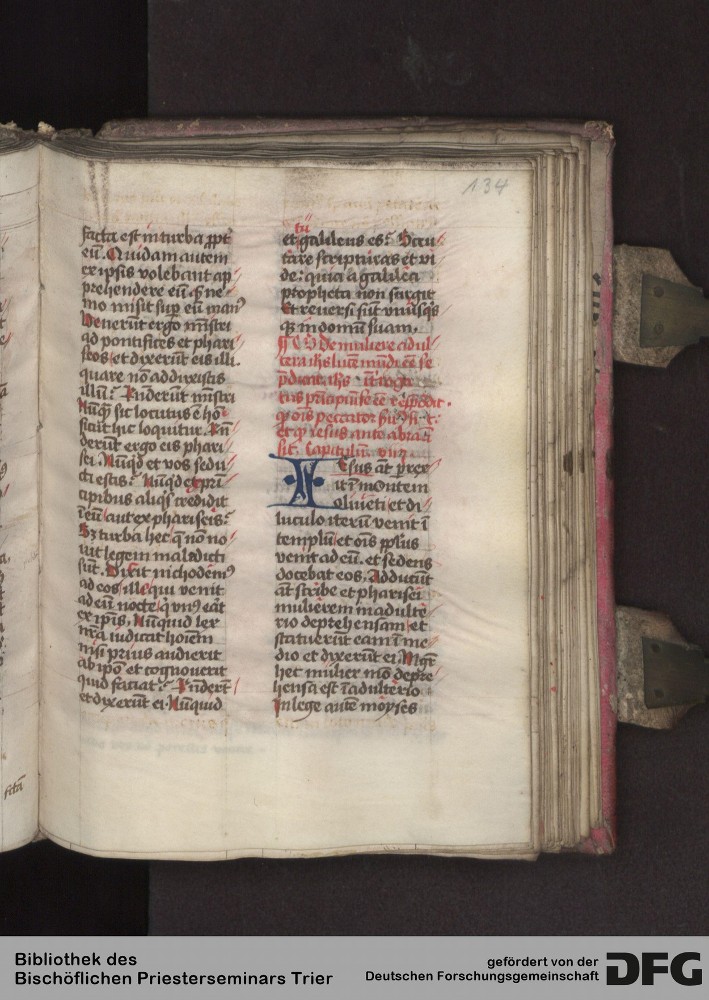 134
facta est in turba ꝓpt
eū. Quidam autem
ex ipsis volebant ap
prehendere eū sꝫ ne
mo misit suꝑ eū manꝰ
Venerūt ergo mīstri
ad pontifices et phari
seos et dixerūt eis illi.
quare nō addixistis
illū? Rn̄derūt mīstri
Nūqͣ sic locutus ē hō
sicut hic loquitur. Rn̄
derūt ergo eis phari
sei. Nūqͥd et vos sedu
cti estis? Nūqͥd ex prī
cipibus aliqͥs credidit
ī eū aut ex phariseis?
Sꝫ turba hec q̄ non no
uit legem maledicti
sūt. Dixit nichodemꝰ
ad eos ille qui venit
ad eū nocte qͥ vnꝰ erat
ex ipīs. Nunquid lex
nr̄a iudicat hoīem
nisi prius audierit
ab ip̄o et cognouerit
quid faciat? Rn̄derūt
et dixerūt ei. Nūquid
tu
et galileus es? Scru
tare scripturas et vi
de: quia a galilea
propheta non surgit
Et reuersi sūt vnusqͥs
qꝫ in domū suam.
De muliere adul
tera
Capitulū
Iesus āt perrex
it ī montem
oliueti et di
luculo iterū venit ī
templū et oīs ppl̄us
venit ad eū. et sedens
docebat eos. Adducūt
āt scribe et pharisei
mulierem in adulte
rio deprehensam et
statuerūt eam ī me
dio et dixerūt ei. Mgr̄
hec mulier mō depre
hensa est ī adulterio
In lege autē moyses
Bibliothek des
Bischöflichen Priesterseminars Trier
gefördert von der
Deutschen Forschungsgemeinschaft
DFG